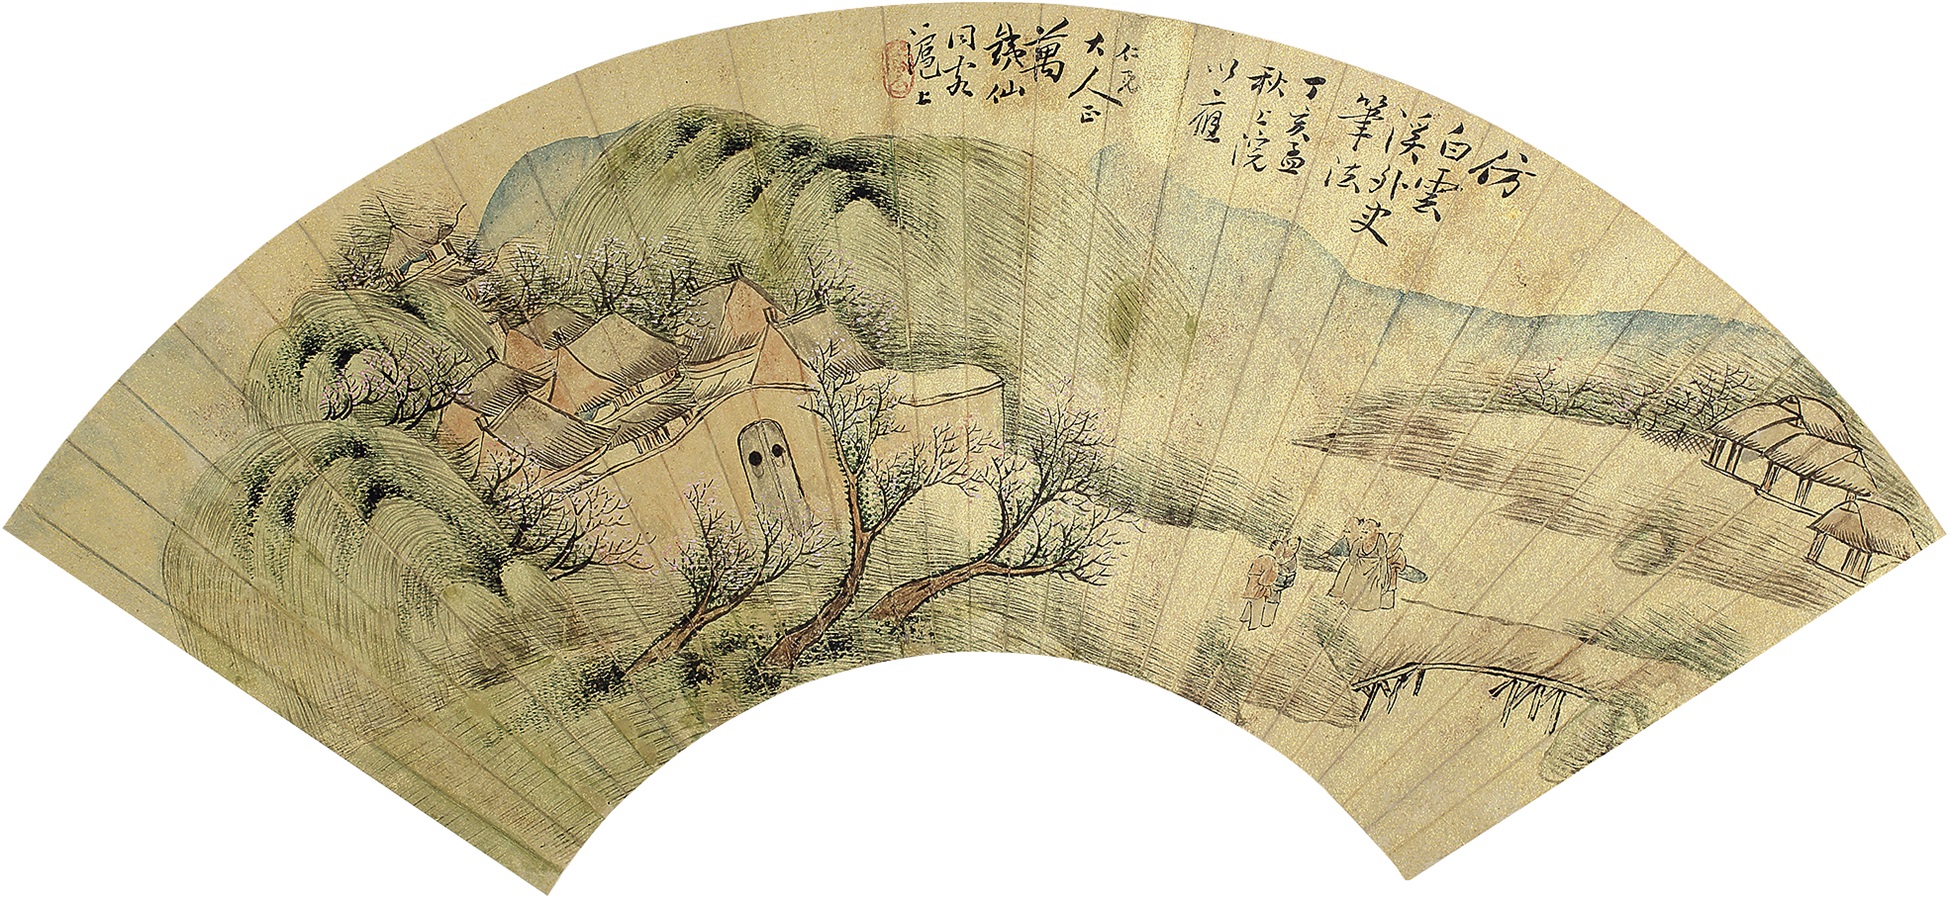 仿
白雲
溪外史
筆法
丁亥孟
秋上浣
以應
仁兄
大人正
萬
仙
同客
滬上